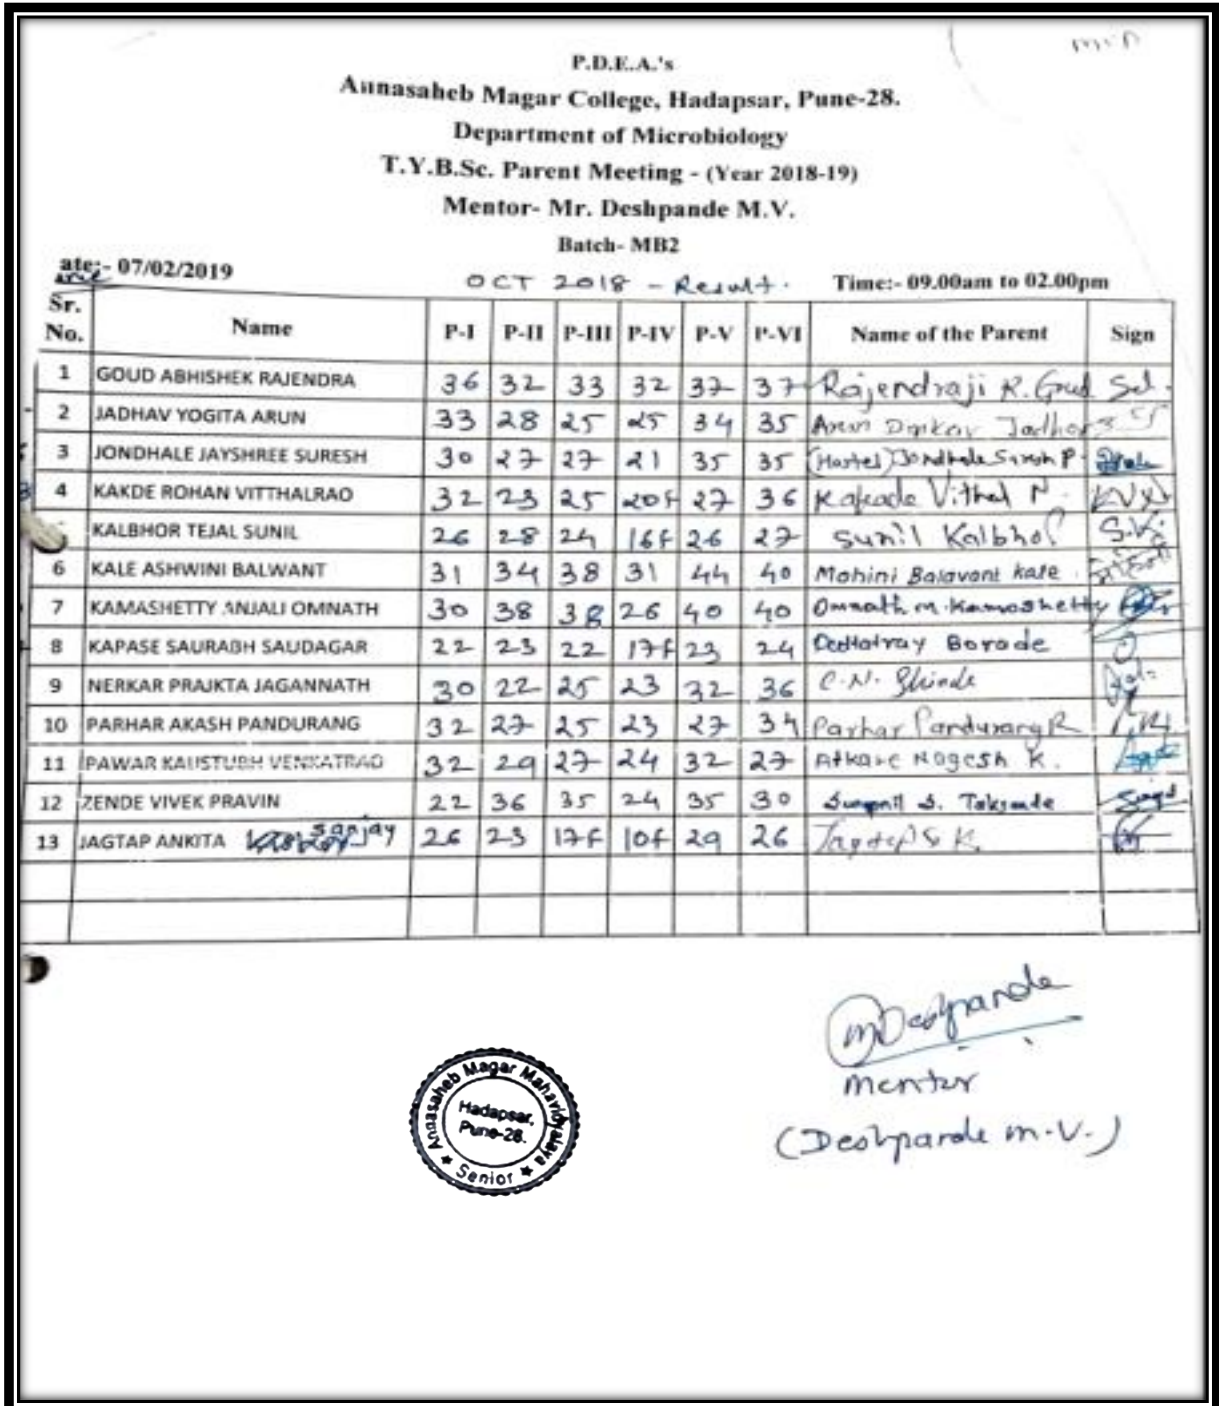 min
P.D.E.A.'s
Annasaheb Magar College, Hadapsar, Pune-28.
Department of Microbiology
T.Y.B.Sc. Parent Meeting - (Year 2018-19)
Mentor- Mr. Deshpande M.V.
Batch- MB2
ate:- 07/02/2019 OCT 2018 - Result. Time:- 09.00am to 02.00pm
Sr. No. Name P-I P-II P-III P-IV P-V P-VI Name of the Parent Sign
1 GOUD ABHISHEK RAJENDRA 36 32 33 32 37 37 Rajendraji R. Goud
2 JADHAV YOGITA ARUN 33 28 25 25 34 35 Arun Jadhav
3 JONDHALE JAYSHREE SURESH 30 27 27 21 35 35 (Hostel) Jondhale Suresh P.
4 KAKDE ROHAN VITTHALRAO 32 23 25 20F 27 36 Kakade Vithal N.
KALBHOR TEJAL SUNIL 26 28 24 16F 26 27 Sunil Kalbhor
6 KALE ASHWINI BALWANT 31 34 38 31 44 40 Mohini Balavant Kale
7 KAMASHETTY ANJALI OMNATH 30 38 38 26 40 40 Omnath m. Kamashetty
8 KAPASE SAURABH SAUDAGAR 22 23 22 17F 23 24 Dattatray Borade
9 NERKAR PRAJKTA JAGANNATH 30 22 25 23 32 36 C.N. Shinde
10 PARHAR AKASH PANDURANG 32 27 25 23 27 34 Parhar Pandurang R
11 PAWAR KAUSTUBH VENKATRAO 32 29 27 24 32 27 Atkare Nagesh K.
12 ZENDE VIVEK PRAVIN 22 36 35 24 35 30 Swapnil S. Taksande
13 JAGTAP ANKITA Sanjay 26 23 17F 10F 29 26 Jagtap S K.
mDeshpande
mentor
(Deshpande m.v.)
Annasaheb Magar Mahavidyalaya
Hadapsar,
Pune-28.
★ Senior ★